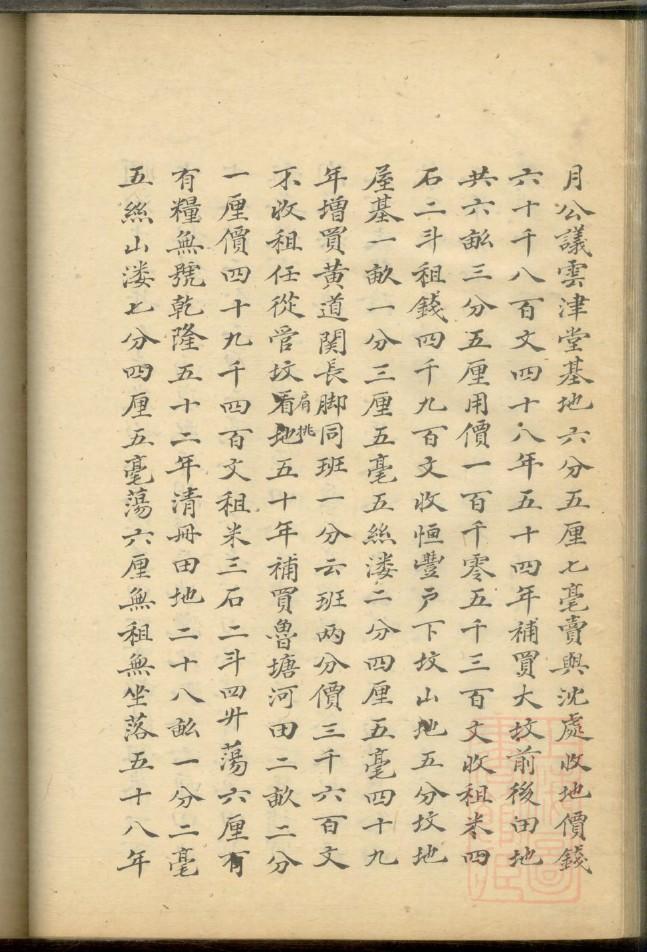 月公議雲津堂基地六分五厘七毫賣與沈處收地價錢
六十千八百文四十八年五十四年補買大坟前後田地
共六畆三分五厘用價一百千零五千三百文收租米四
石二斗租錢四千九百文收恒豐戸下坟山地五分坟地
屋基一畝一分三厘五毫五絲溇二分四厘五毫四十九
年增買黄道関長脚同班一分云班两分價三千六百文
不收租任從管坟看地肩挑五十年補買魯塘河田二畝二分
一厘價四十九千四百文租米三石二斗四升蕩六厘有
有糧無號乾隆五十二年清冊田地二十八畆一分二毫
五絲山溇七分四厘五毫蕩六厘無租無坐落五十八年